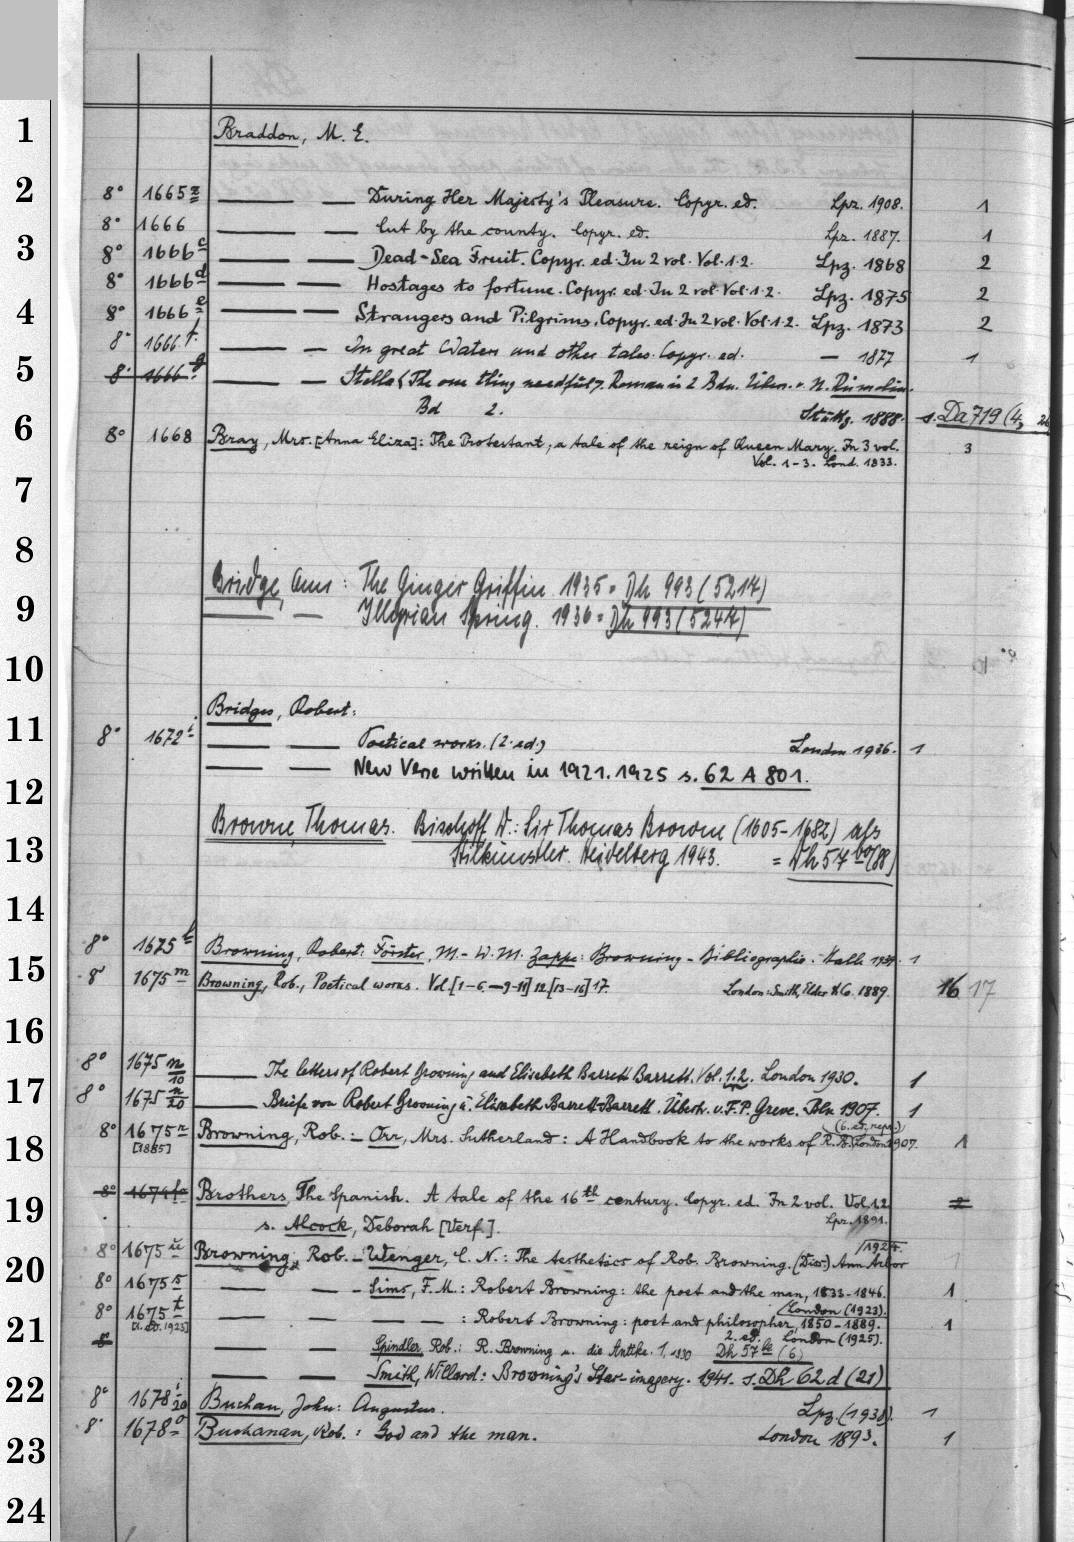 1
Braddon, M. E.
2
8° 1665 z — — During Her Majesty's Pleasure. Copyr. ed. Lpz. 1908. 1
8° 1666 — — Cut by the county. Copyr. ed. Lpz. 1887. 1
3
8° 1666 c — — Dead-Sea Fruit. Copyr. ed. In 2 vol. Vol. 1.2. Lpz. 1868 2
8° 1666 d — — Hostages to fortune. Copyr. ed. In 2 vol. Vol. 1.2. Lpz. 1875 2
4
8° 1666 e — — Strangers and Pilgrims. Copyr. ed. In 2 vol. Vol. 1.2. Lpz. 1873 2
8° 1666 f. — — In great Waters and other tales. Copyr. ed. — 1877 1
5
8° 1666 g — — Stella (The one thing needful). Roman in 2 Bdn. Übers. v. N. Rümelin.
Bd 2. Stuttg. 1888. s. Da 719 (4,
6
8° 1668 Bray, Mrs. [Anna Eliza]: The Protestant, a tale of the reign of Queen Mary. In 3 vol. 3
Vol. 1-3. Lond. 1833.
7
8
Bridge, Ann: The Ginger Griffin. 1935 = Dh 993 (5214)
9
— — Illyrian Spring. 1936 = Dh 993 (5244)
10
Bridges, Robert:
11
8° 1672 i — — Poetical works. (2. ed.) London 1936. 1
— — New Verse written in 1921. 1925 s. 62 A 801.
12
Browne, Thomas. Bischoff, D.: Sir Thomas Browne (1605-1682) als
13
Stilkünstler. Heidelberg 1943. = Dh 57 bo (88)
14
8° 1675 l Browning, Robert: Förster, M. - W. M. Zappe: Browning-Bibliographie. Halle 1939. 1
15
8° 1675 m Browning, Rob., Poetical works. Vol. [1-6. — 9-11] 12 [13-16] 17. London: Smith, Elder & Co. 1889. 16 17
16
8° 1675 n/10 — The letters of Robert Growning and Elisabeth Barrett Barrett. Vol. 1.2. London 1930. 1
17
8° 1675 n/20 — Briefe von Robert Grooning u. Elisabeth Barrett-Barrett. Übers. v. F. P. Greve. Bln 1907. 1
(6. ed., repr.)
8° 1675 r Browning, Rob. - Orr, Mrs. Sutherland: A Handbook to the works of R. B. London 1907. 1
[1885]
18
8° 1674 Brothers, The Spanish. A tale of the 16th century. Copyr. ed. In 2 vol. Vol. 1.2 2
19
s. Alcock, Deborah [Verf.]. Lpz. 1891.
1924.
8° 1675 u Browning, Rob. - Wenger, C. N.: The Aesthetics of Rob. Browning. (Diss.) Ann Arbor 1
20
8° 1675 s — — - Sims, F. M.: Robert Browning: the poet and the man, 1833-1846. 1
London (1923).
8° 1675 t — — — : Robert Browning: poet and philosopher, 1850-1889. 1
21
2. ed. London (1925).
8° — — Spindler, Rob.: R. Browning u. die Antike. 1. 1930 Dh 57 (6)
— — Smith, Willard: Browning's Star-imagery. 1941. s. Dh 62 d (21)
22
8° 1678 i/20 Buchan, John: Augustus. Lpz. (1938). 1
8° 1678 o Buchanan, Rob.: God and the man. London 1893. 1
23
24